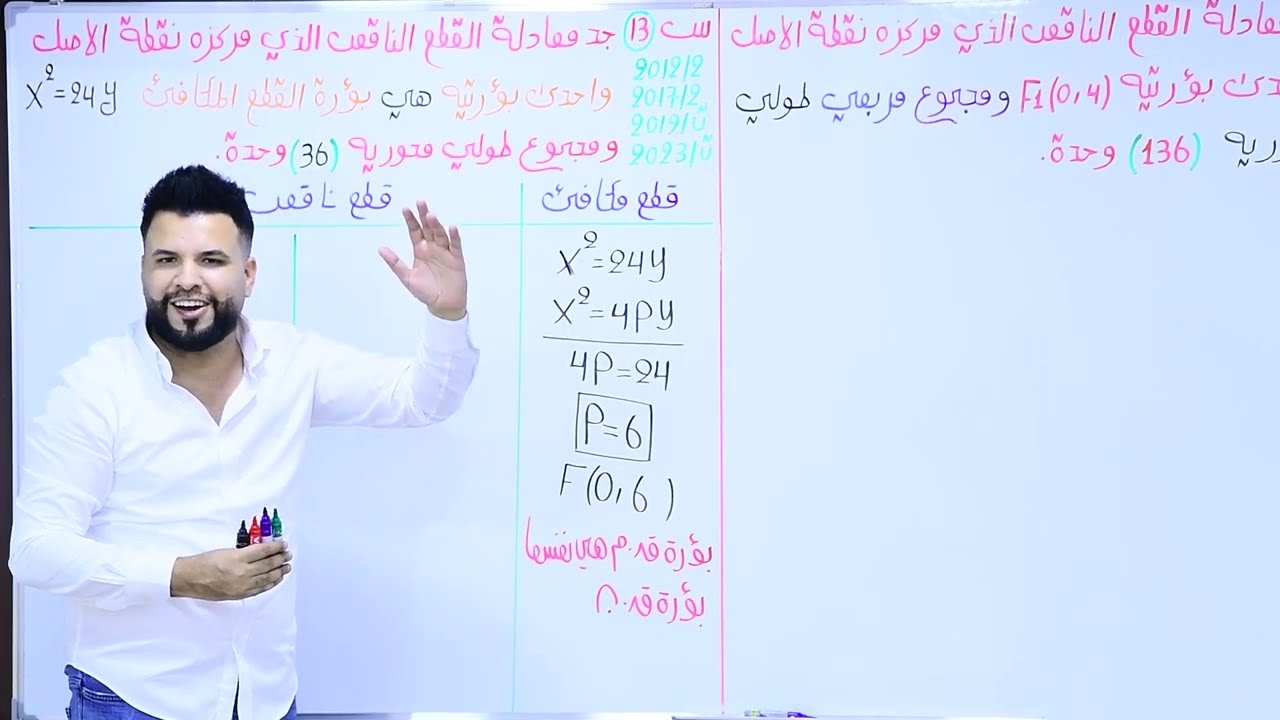 س 13 جد معادلة القطع الناقص الذي مركزه نقطة الاصل
واحدى بؤرتيه هي بؤرة القطع المكافئ X²=24y
ومجموع طولي محوريه (36) وحدة.
2012/2
2017/2
2019/ت
2023/ت
قطع مكافئ
X²=24y
X²=4Py
4P=24
P=6
F(0,6)
بؤرة ق.م هي نفسها
بؤرة ق.ن
قطع ناقص
معادلة القطع الناقص الذي مركزه نقطة الاصل
حدى بؤرتيه F1(0,4) ومجموع مربعي طولي
وريه (136) وحدة.